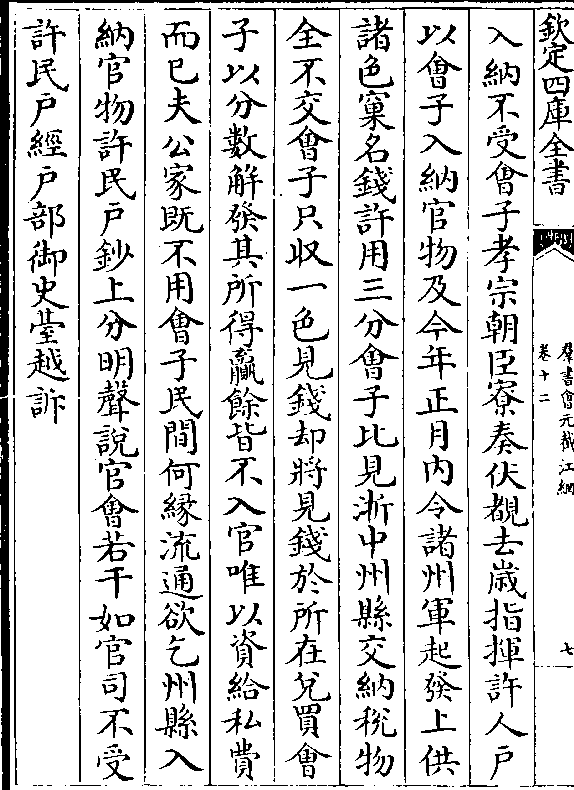 欽定四庫全書
羣書會元截江網
卷十二
七
入納不受㑹子孝宗朝臣寮奏伏覩去歲指揮許人戶
以㑹子入納官物及今年正月内令諸州軍起發上供
諸色窠名錢許用三分㑹子比見浙中州縣交納稅物
全不交㑹子只収一色見錢却將見錢於所在兌買㑹
子以分數解發其所得贏餘皆不入官唯以資給私費
而已夫公家既不用㑹子民間何縁流通欲乞州縣入
納官物許民戶鈔上分明聲說官㑹若干如官司不受
許民戶經戶部御史臺越訴